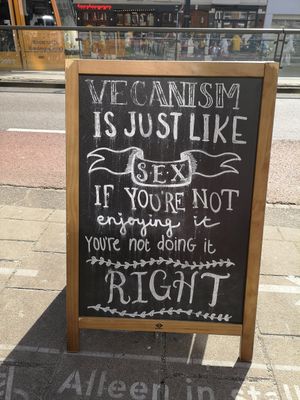 VEGANISM
IS JUST LIKE
SEX
IF YOU'RE NOT
enjoying it
you're not doing it
RIGHT
Alleen in